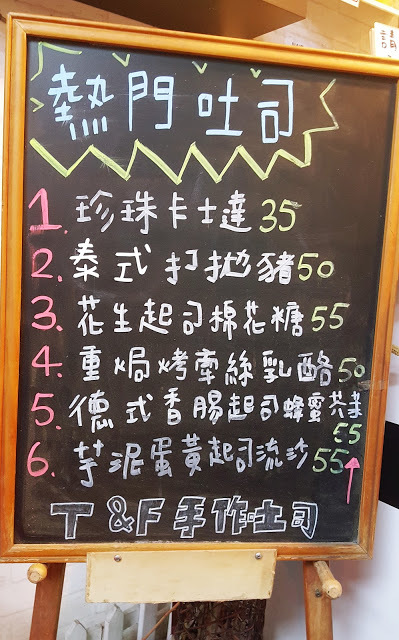 熱門吐司
1. 珍珠卡士達 35
2. 泰式打拋豬 50
3. 花生起司棉花糖 55
4. 重焗烤牽絲乳酪 50
5. 德式香腸起司蜂蜜芥茉
55
6. 芋泥蛋黃起司流沙 55
T&F手作吐司